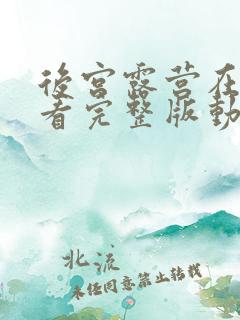 後宮露营在
看完整版動
北流
未经同意禁止转载